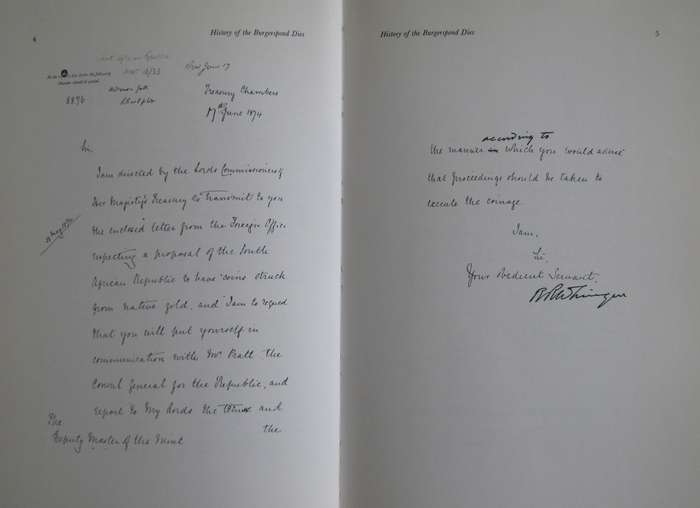 4
History of the Burgerspond Dies
8896
Treasury Chambers
17th June 1874
Sir,
I am directed by the Lords Commissioners of
Her Majesty's Treasury to transmit to you
the enclosed letter from the Foreign Office
respecting a proposal of the South
African Republic to have coins struck
from native gold, and I am to request
that you will put yourself in
communication with Mr Pratt the
Consul General for the Republic, and
report to My Lords the and
the
The
Deputy Master of the Mint
History of the Burgerspond Dies
5
according to
the manner in which you would advise
that proceedings should be taken to
execute the coinage
I am,
Sir
Your Obedient Servant.